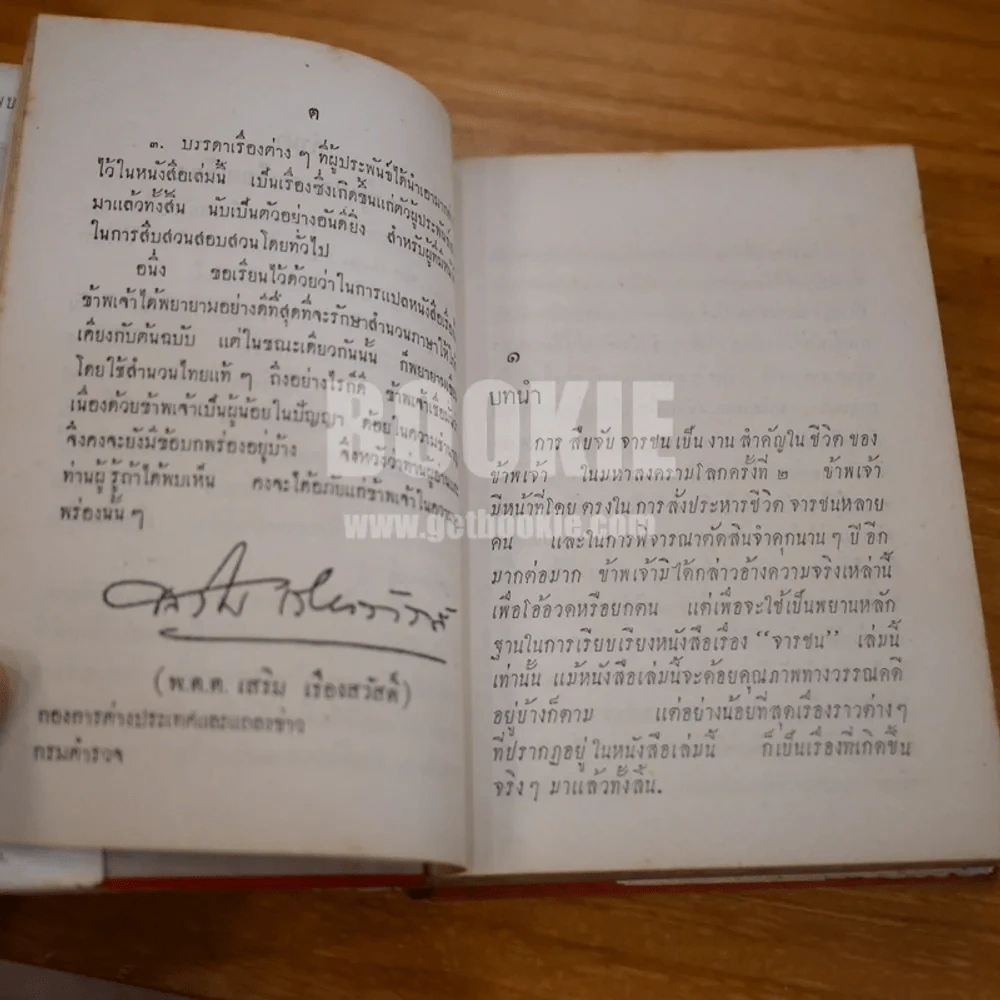 ต
๓. บรรดาเรื่องต่าง ๆ ที่ผู้ประพันธ์ได้นำเอามา
ไว้ในหนังสือเล่มนี้ เป็นเรื่องซึ่งเกิดขึ้นแก่ตัวผู้ประพันธ์
มาแล้วทั้งสิ้น นับเป็นตัวอย่างอันดียิ่ง สำหรับผู้ที่มี
ในการสืบสวนสอบสวนโดยทั่วไป
อนึ่ง ขอเรียนไว้ด้วยว่าในการแปลหนังสือเรื่อง
ข้าพเจ้าได้พยายามอย่างดีที่สุดที่จะรักษาสำนวนภาษาให้
เคียงกับต้นฉบับ แต่ในขณะเดียวกันนั้น ก็พยายาม
โดยใช้สำนวนไทยแท้ ๆ ถึงอย่างไรก็ดี ข้าพเจ้า
เนื่องด้วยข้าพเจ้าเป็นผู้น้อยในปัญญา ด้อยในความ
จึงคงจะยังมีข้อบกพร่องอยู่บ้าง จึงหวังว่าท่านผู้อ่าน
ท่านผู้รู้ถ้าได้พบเห็น คงจะได้อภัยแก่ข้าพเจ้าใน
พร่องนั้น ๆ
(พ.ต.ต. เสริม เรืองสวัสดิ์)
กองการต่างประเทศและแถลงข่าว
กรมตำรวจ
๑
บทนำ
การ สืบจับ จารชน เป็น งาน สำคัญใน ชีวิต ของ
ข้าพเจ้า ในมหาสงครามโลกครั้งที่ ๒ ข้าพเจ้า
มีหน้าที่โดย ตรงใน การ สั่งประหารชีวิต จารชนหลาย
คน และในการพิจารณาตัดสินจำคุกนาน ๆ ปี อีก
มากต่อมาก ข้าพเจ้ามิได้กล่าวอ้างความจริงเหล่านี้
เพื่อโอ้อวดหรือยกตน แต่เพื่อจะใช้เป็นพยานหลัก
ฐานในการเรียบเรียงหนังสือเรื่อง “จารชน” เล่มนี้
เท่านั้น แม้หนังสือเล่มนี้จะด้อยคุณภาพทางวรรณคดี
อยู่บ้างก็ตาม แต่อย่างน้อยที่สุดเรื่องราวต่างๆ
ที่ปรากฏอยู่ ในหนังสือเล่มนี้ ก็เป็นเรื่องที่เกิดขึ้น
จริง ๆ มาแล้วทั้งสิ้น.
BOOKIE
www.getbookie.com